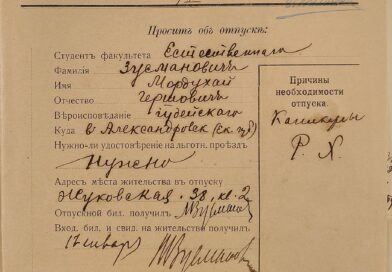 Проситъ объ отпускѣ:
Студентъ факультета Естественнаго
Фамилія Зусмановичъ
Имя Мордухай
Отчество Гершовичъ
Вѣроисповѣданіе Іудейскаго
Куда въ Александровск (Ек. губ)
Нужно-ли удостовѣреніе на льготн. проѣздъ
Нужно
Адресъ мѣста жительства въ отпуску
Жуковская 38, кв. 2
Отпускной бил. получилъ
Вход. бил. и свид. на жительство получилъ
января
Причины
необходимости
отпуска.
Каникулы
Р. Х.